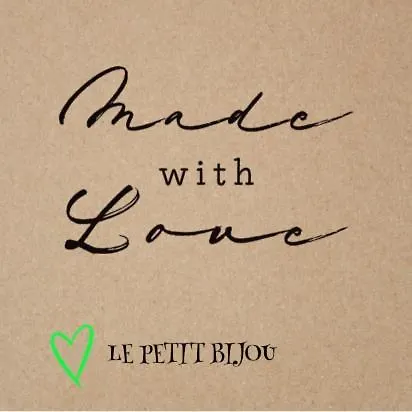 Made
with
Love
LE PETIT BIJOU